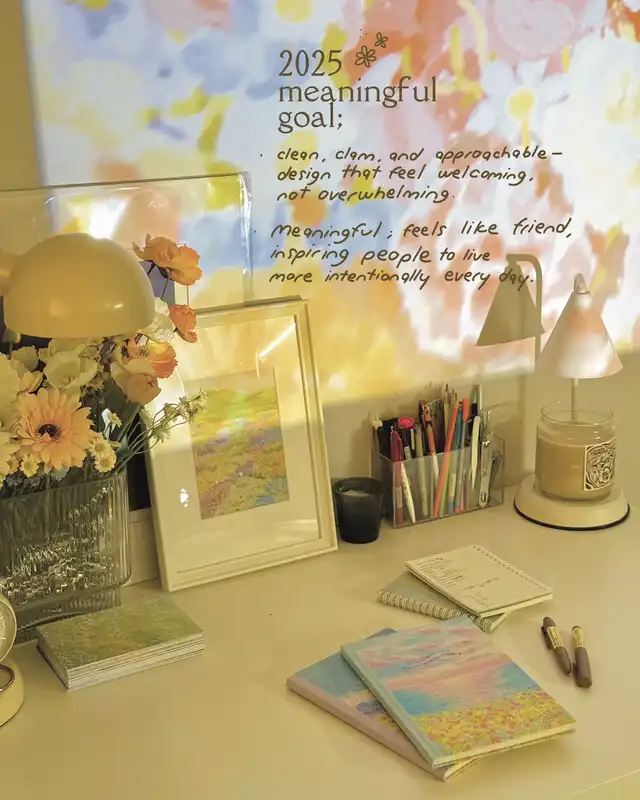 2025
meaningful
goal;
clean, clam, and approachable –
design that feel welcoming,
not overwhelming.
Meaningful; feels like friend,
inspiring people to live
more intentionally every day.